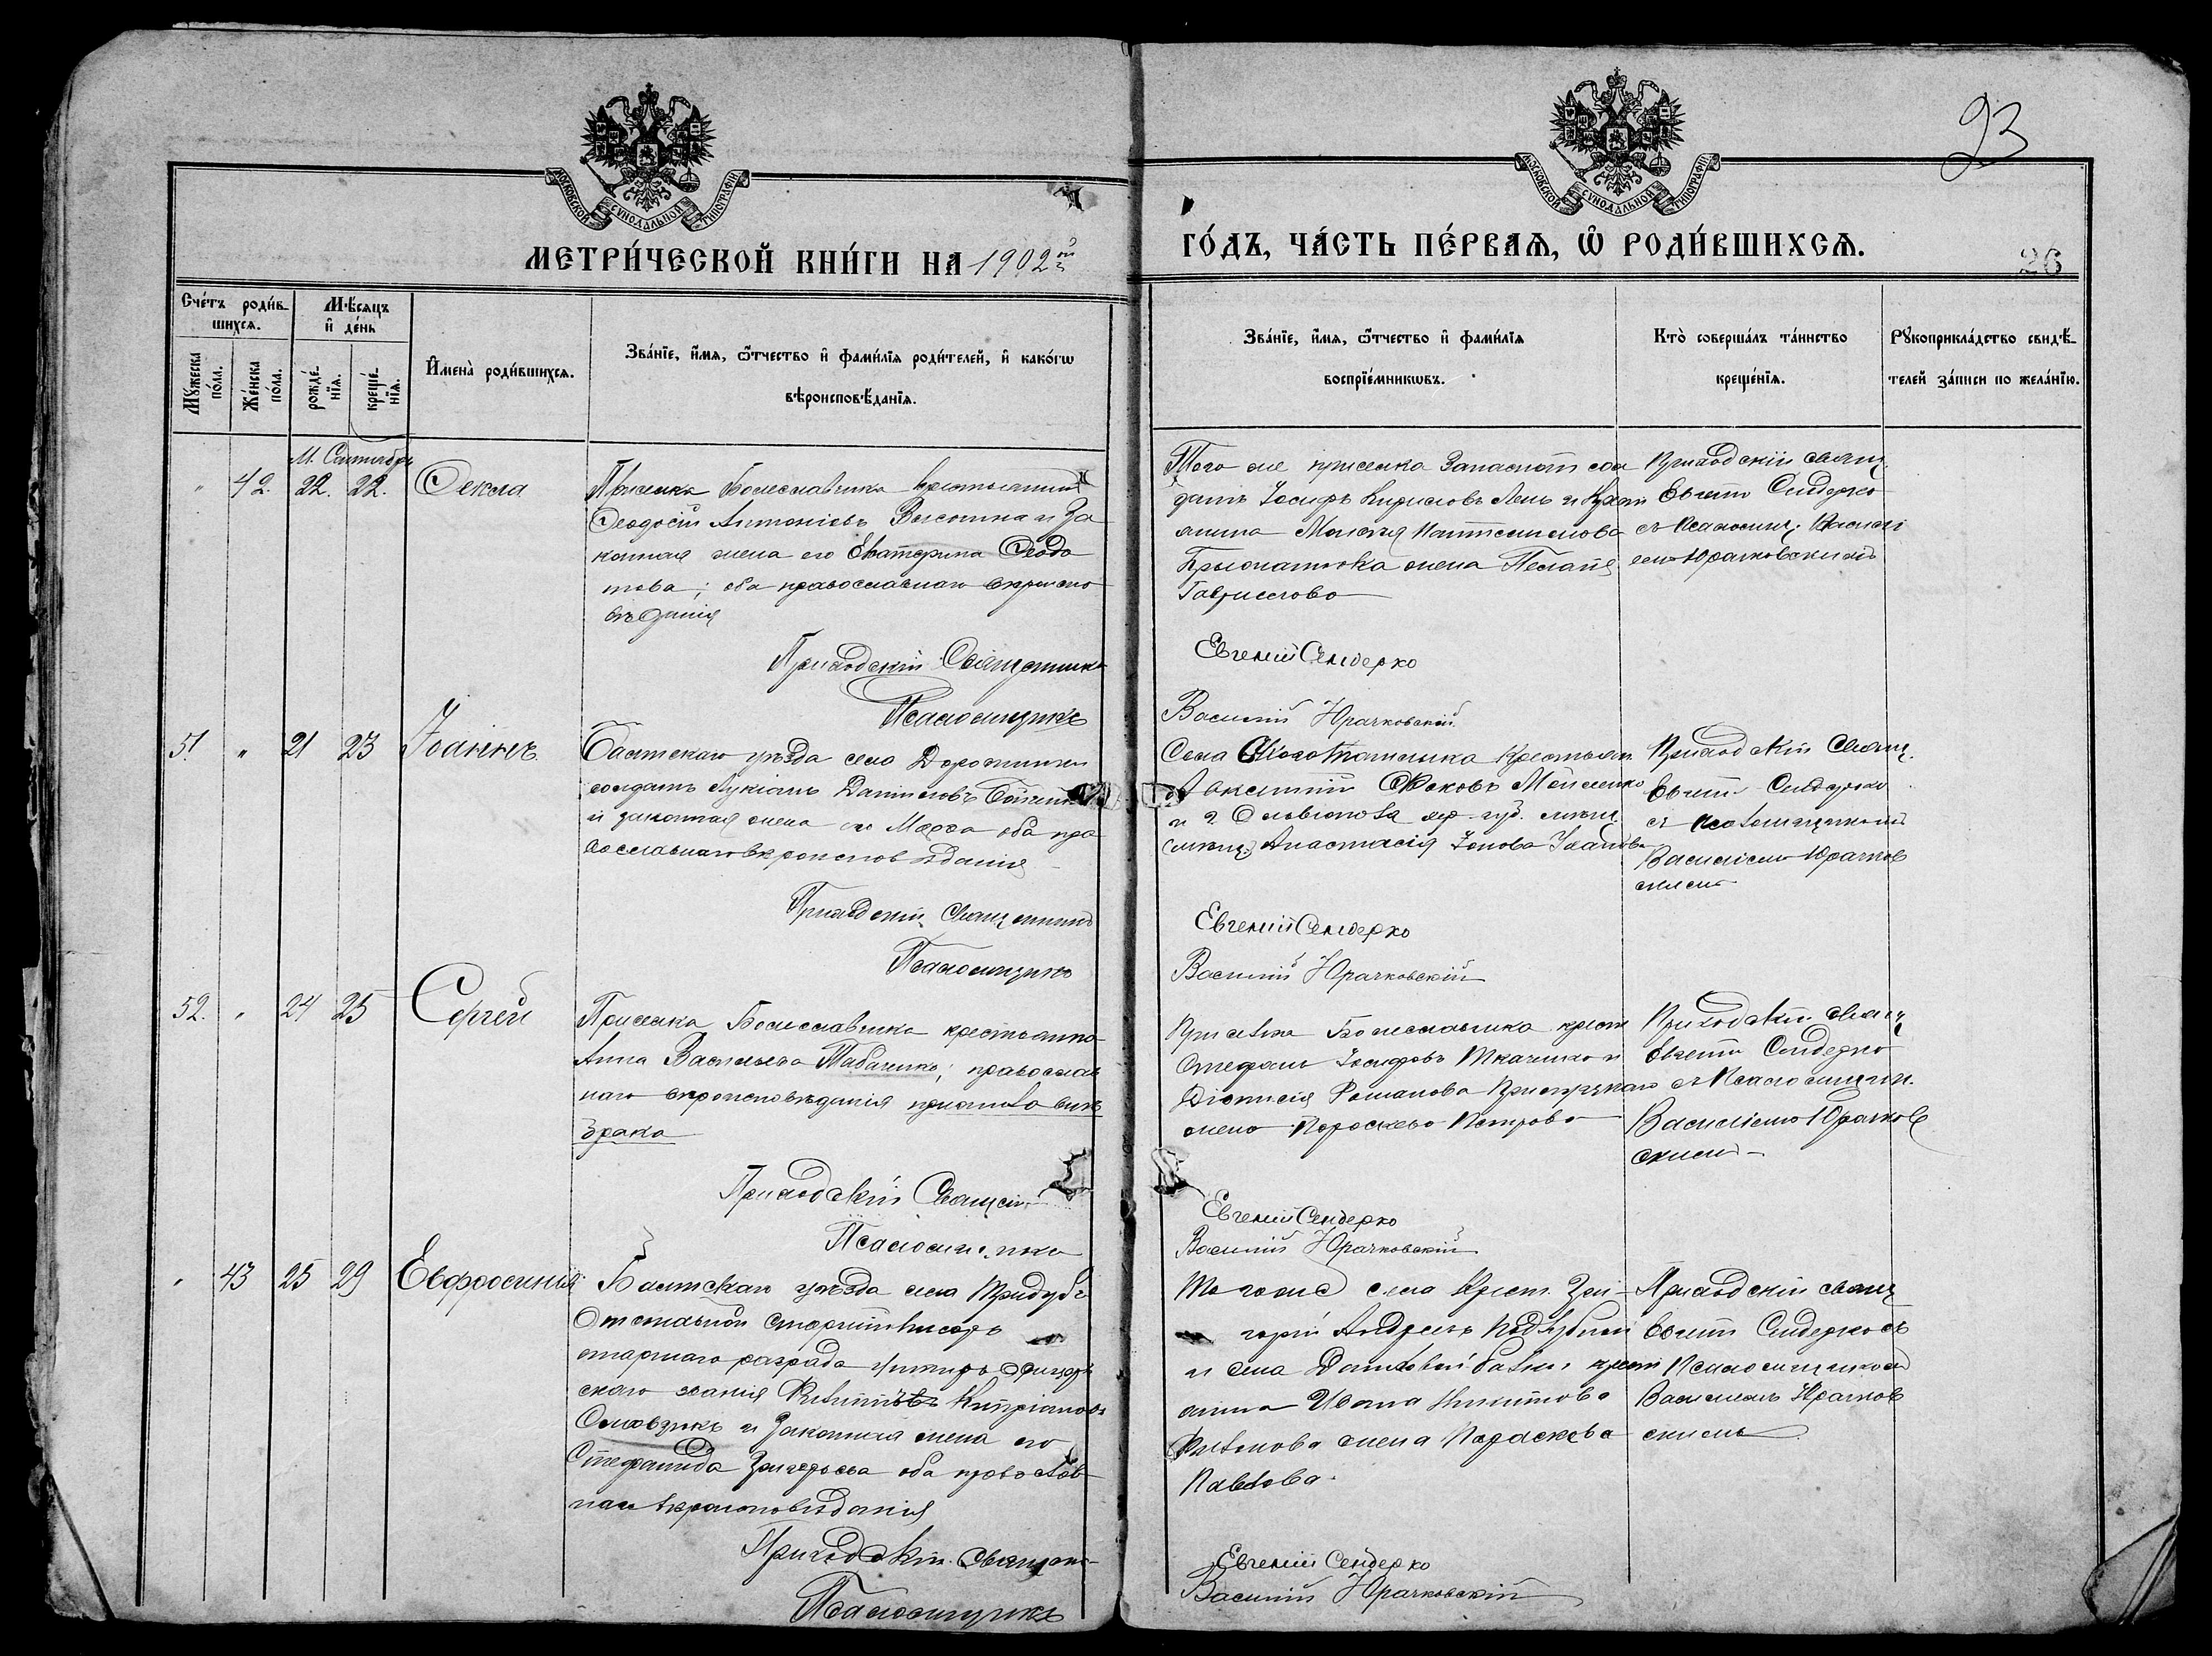 93
МОСКОВСКОЙ СѴНОДАЛЬНОЙ ТИПОГРАФІИ
МОСКОВСКОЙ СѴНОДАЛЬНОЙ ТИПОГРАФІИ
МЕТРИ́ЧЕСКОЙ КНИ́ГИ НА 1902 й
ГО́ДЪ, ЧА́СТЬ ПЕ́РВАѦ, Ѡ РОДИ́ВШИХСѦ.
26
Сче́тъ роди́в-
шихсѧ.
Мꙋ́жеска по́ла.
Же́нска по́ла.
Мѣ́сѧцъ
и҆ де́нь
рожде́-
нїѧ.
креще́-
нїѧ.
И҆мена̀ роди́вшихсѧ.
Зва́нїе, и҆́мѧ, ѻ҆́тчество и҆ фами́лїѧ роди́телей, и҆ како́гѡ
вѣроисповѣ́данїѧ.
Зва́нїе, и҆́мѧ, ѻ҆́тчество и҆ фами́лїѧ
воспрїе́мникѡвъ.
Кто̀ соверша́лъ та́инство
креще́нїѧ.
Рꙋкоприкла́дство свидѣ́-
телей за́писи по жела́нїю.
М. Сентябрь
" 42. 22. 22. Ѳекла
Приселка Болеславчика крестьянинъ
Ѳеодосій Антоніевъ и за
конная жена его Екатерина Ѳеодо
това; оба православнаго вѣроиспо
вѣданія
Приходскій Священникъ
Псаломщикъ
Того же приселка запасный сол
датъ Іосифъ Кириловъ
жена Пелагія
Гавриилова
Евгеній Сендерко
Василій Юрачковскій
Приходскій свящ.
Евгеній Сендерко
съ псаломщ. Василі
емъ Юрачковскимъ
51 " 21 23 Іоаннъ
Балтскаго уѣзда села
солдатъ Лукіанъ Даниловъ
и законная жена его Марѳа оба пра
вославнаго вѣроисповѣданія
Приходскій священникъ
Псаломщикъ
Села крестьян.
Анастасія Іонова
Евгеній Сендерко
Василій Юрачковскій
Приходскій свящ.
Евгеній Сендерко
съ псаломщикомъ
Василіемъ Юрачков
скимъ
52. " 24 25 Сергѣй
Приселка Болеславчика крестьянка
Анна Васильева Табаченко; православ
наго вѣроисповѣданія прижила внѣ
брака
Приходскій Священ
Псаломщикъ
Приселка Болеславчика крест
Стефанъ Іосифовъ Ткаченко и
Діонисія Романова
жена Параскева Петрова
Евгеній Сендерко
Василій Юрачковскій
Приходскій свящ
Евгеній Сендерко
съ псаломщик.
Василіемъ Юрачков
скимъ
" 43 25 29 Евфросинія
Балтскаго уѣзда села
Отставной старшій писарь
старшаго разряда унтеръ офицер
скаго званія Кипріановъ
и законная жена его
Стефанида Григорьева оба православ
наго вѣроисповѣданія
Приходскій Священ
Псаломщикъ
Того же села крест. Гри-
горій Андреевъ
и села крест
Ивана Никитова
жена Параскева
Павлова.
Евгеній Сендерко
Василій Юрачковскій
Приходскій свящ
Евгеній Сендерко съ
псаломщикомъ
Василіемъ Юрачков
скимъ